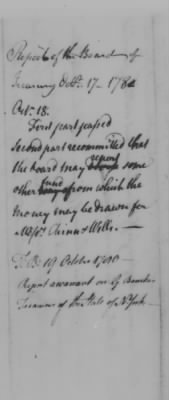 Report of the Board of
Treasury Octr. 17. 1780
Oct. 18.
First part passed
Second part recommitted that
the board may report some
other fund from which the
money may be drawn for
Messrs.
T.B. 19 October 1780
Report a warrant on G Bancker
Treasurer of the State of N York